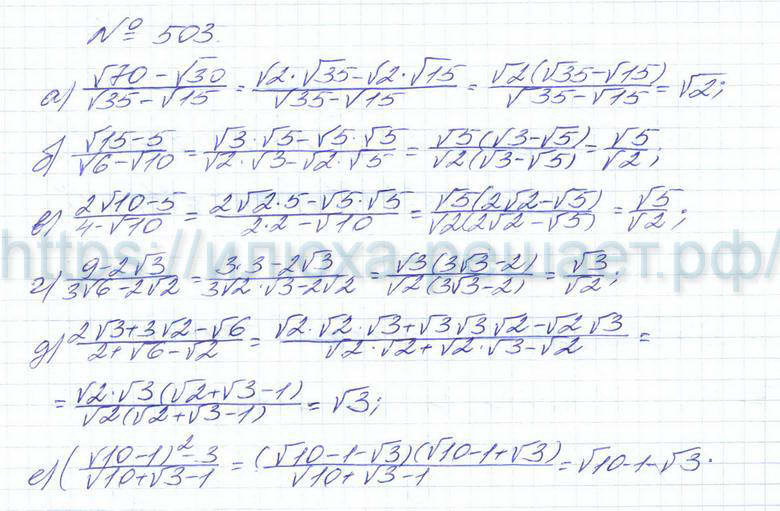 № 503.
а) (√70 − √30)/(√35 − √15) = (√2·√35 − √2·√15)/(√35 − √15) = √2(√35 − √15)/(√35 − √15) = √2;
б) (√15 − 5)/(√6 − √10) = (√3·√5 − √5·√5)/(√2·√3 − √2·√5) = √5(√3 − √5)/√2(√3 − √5) = √5/√2;
в) (2√10 − 5)/(4 − √10) = (2√2·5 − √5·√5)/(2·2 − √10) = √5(2√2 − √5)/√2(2√2 − √5) = √5/√2;
https://илюха-решает.рф/
г) (9 − 2√3)/(3√6 − 2√2) = (3·3 − 2√3)/(3√2·√3 − 2√2) = √3(3√3 − 2)/√2(3√3 − 2) = √3/√2;
д) (2√3 + 3√2 − √6)/(2 + √6 − √2) = (√2·√2·√3 + √3√3√2 − √2√3)/(√2·√2 + √2·√3 − √2) =
= √2·√3(√2 + √3 − 1)/√2(√2 + √3 − 1) = √3;
е) ((√10 − 1)² − 3)/(√10 + √3 − 1) = (√10 − 1 − √3)(√10 − 1 + √3)/(√10 + √3 − 1) = √10 − 1 − √3.